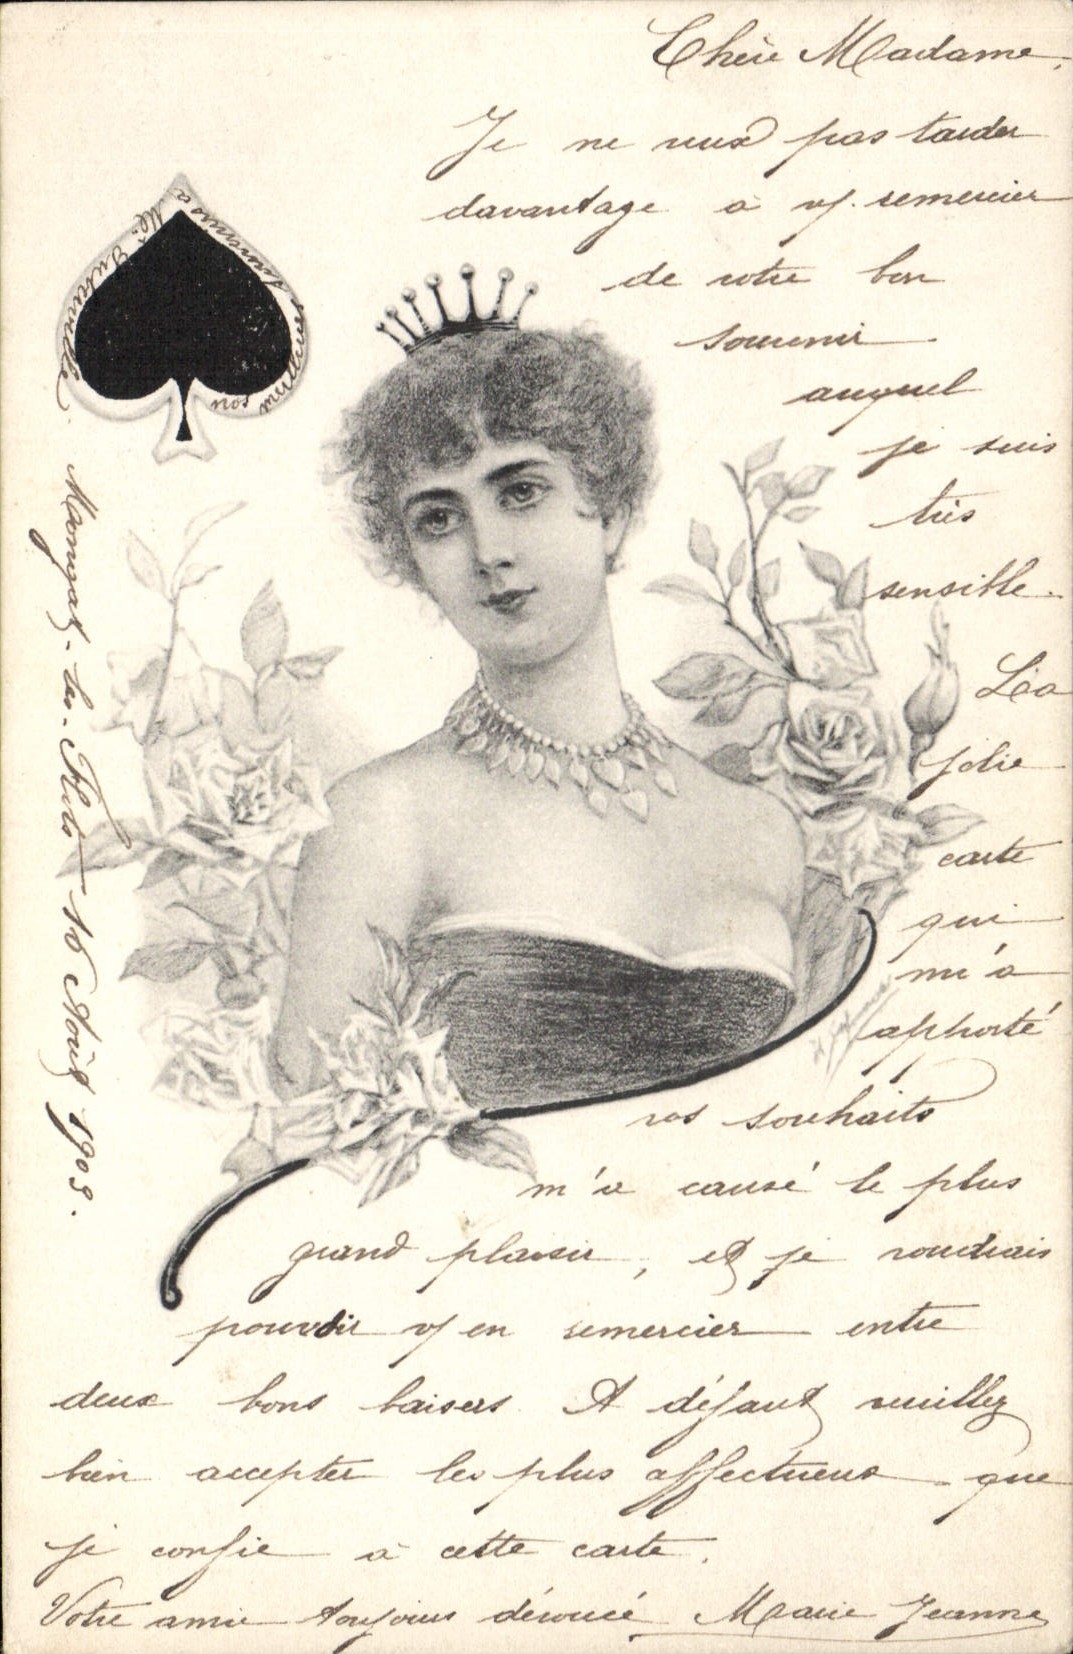 Chère Madame,
Je ne veux pas tarder
davantage à v/. remercier
de votre bon
souvenir
auquel
je suis
très
sensible.
La
jolie
carte
qui
m'a
apporté
vos souhaits
m'a causé le plus
grand plaisir, et je voudrais
pouvoir v/ en remercier entre
deux bons baisers. A défaut veuillez
bien accepter les plus affectueux que
je confie à cette carte.
Votre amie toujours dévouée Marie Jeanne
nos meilleurs à
les-Flots 16 Août 1903.